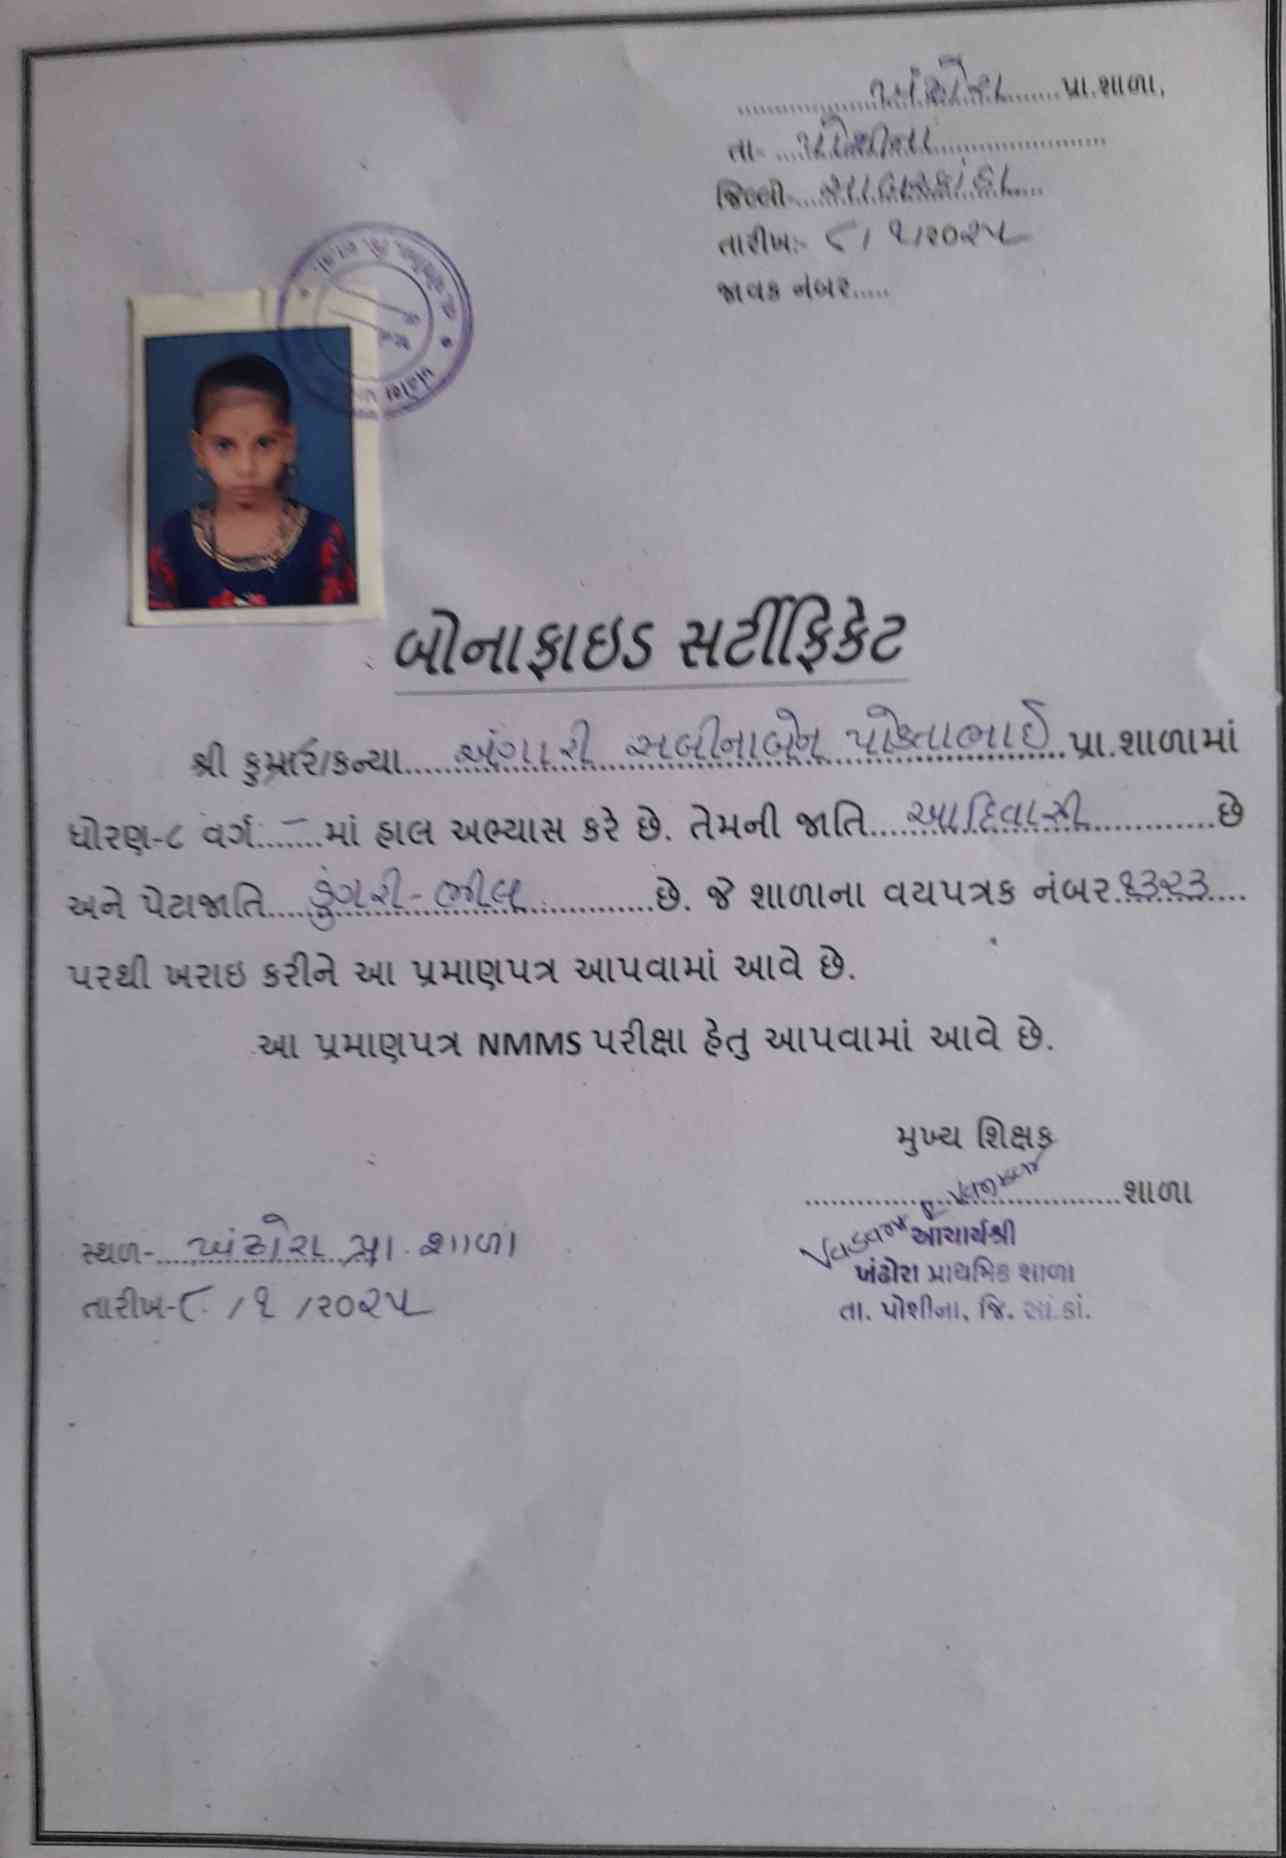 ખંઢોરા પ્રા.શાળા,
તા- પોશીના
જિલ્લો- સાબરકાંઠા
તારીખ:- ૮/૧/૨૦૨૫
જાવક નંબર.....
બોનાફાઇડ સર્ટીફિકેટ
શ્રી કુમાર/કન્યા અંગારી સબીનાબેન પોક્તાભાઈ પ્રા.શાળામાં
ધોરણ-૮ વર્ગ - માં હાલ અભ્યાસ કરે છે. તેમની જાતિ આદિવાસી છે
અને પેટાજાતિ ડુંગરી-ભીલ છે. જે શાળાના વયપત્રક નંબર ૧૩૨૩
પરથી ખરાઇ કરીને આ પ્રમાણપત્ર આપવામાં આવે છે.
આ પ્રમાણપત્ર NMMS પરીક્ષા હેતુ આપવામાં આવે છે.
મુખ્ય શિક્ષક
શાળા
આચાર્યશ્રી
ખંઢોરા પ્રાથમિક શાળા
તા. પોશીના, જિ. સાં.કાં.
સ્થળ- ખંઢોરા પ્રા. શાળા
તારીખ-૮/૧/૨૦૨૫